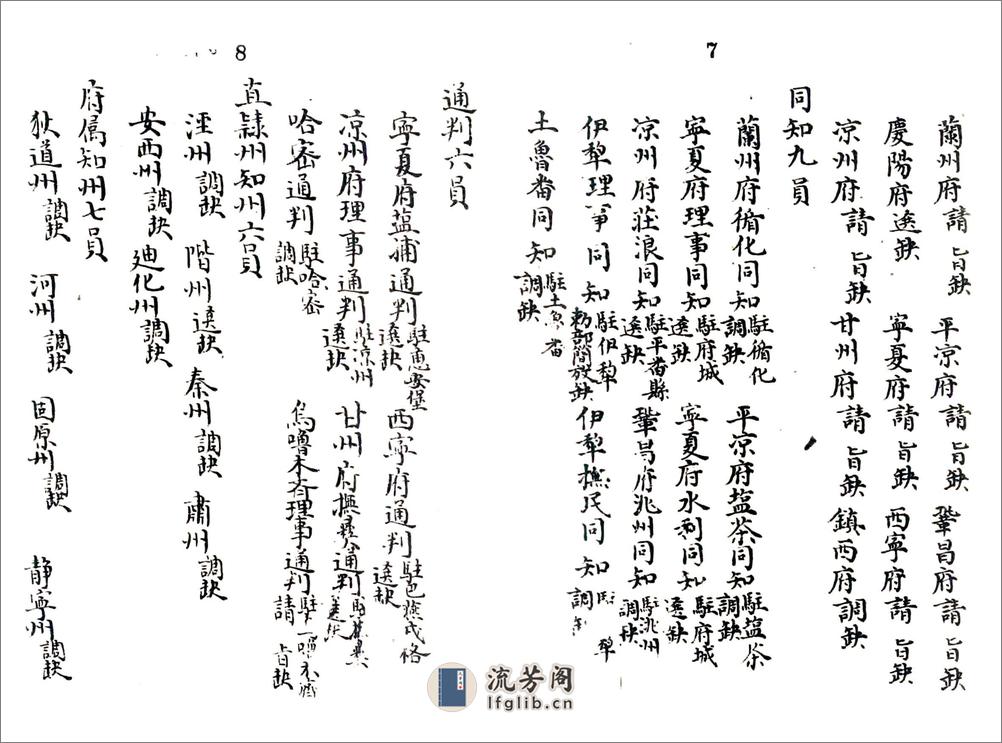 7
蘭州府請旨缺 平凉府請旨缺 鞏昌府請旨缺
慶陽府選缺 寧夏府請旨缺 西寧府請旨缺
凉州府請旨缺 甘州府請旨缺 鎮西府調缺
同知九員
蘭州府循化同知駐循化調缺 平凉府塩茶同知駐塩茶調缺
寧夏府理事同知駐府城選缺 寧夏府水利同知駐府城選缺
凉州府莊浪同知駐平番縣選缺 鞏昌府洮州同知駐洮州調缺
伊犂理事同知駐伊犂勅部簡放缺 伊犂撫民同知 犂調
土魯番同知駐土魯番調缺
8
通判六員
寧夏府塩捕通判駐惠安堡選缺 西寧府通判駐巴燕戎格選缺
凉州府理事通判駐凉州選缺 甘州府撫彝通判
哈密通判駐哈密調缺 烏嚕木齊理事通判駐 嚕木齊請旨缺
直隷州知州六員
涇州調缺 階州選缺 秦州調缺 肅州調缺
安西州調缺 廸化州調缺
府属知州七員
狄道州調缺 河州調缺 固原州調缺 静寧州調缺
流芳阁
lfglib.cn